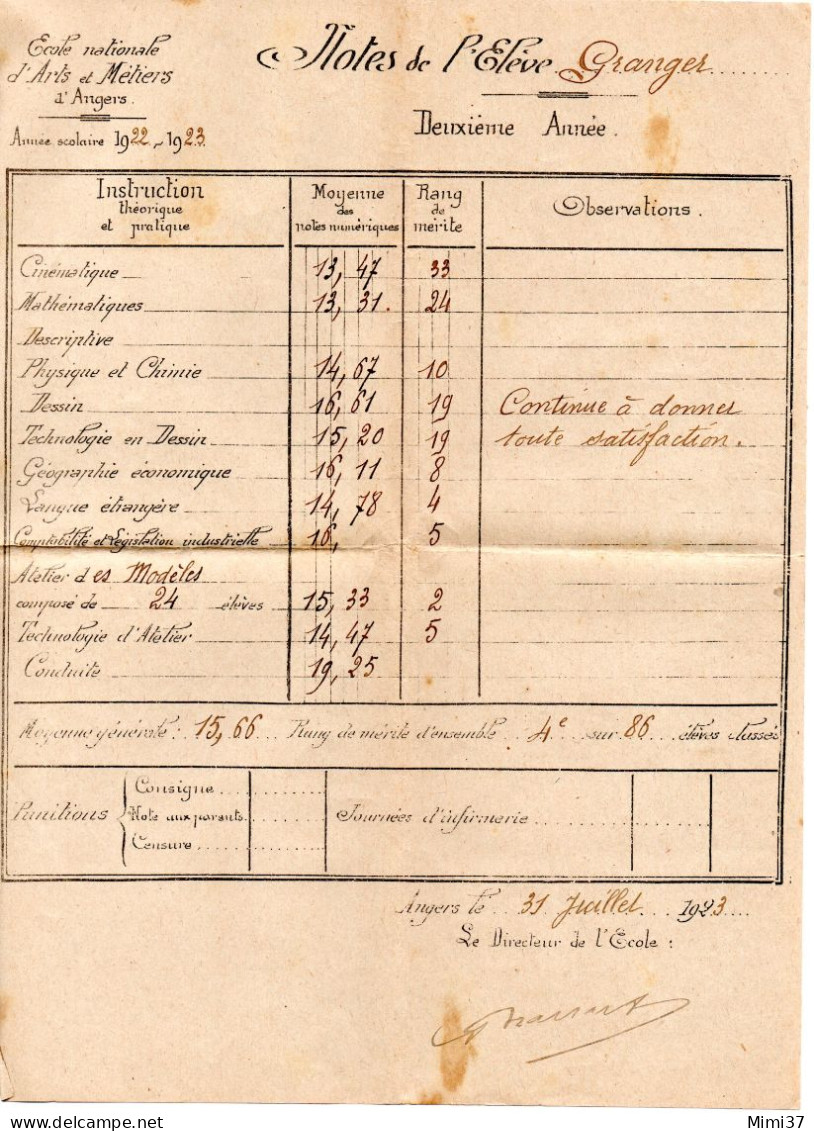 Ecole nationale
d'Arts et Métiers
d'Angers.
Année scolaire 1922-1923.
Notes de l'Elève Granger
Deuxième Année.
Instruction
théorique
et pratique
Moyenne
des
notes numériques
Rang
de
mérite
Observations.
Cinématique 13,47 33
Mathématiques 13,31. 24
Descriptive
Physique et Chimie 14,67 10
Dessin 16,61 19 Continue à donner
Technologie en Dessin 15,20 19 toute satisfaction.
Géographie économique 16,11 8
Langue étrangère 14,78 4
Comptabilité et Législation industrielle 16, 5
Atelier des Modèles
composé de 24 élèves 15,33 2
Technologie d'Atelier 14,47 5
Conduite 19,25
Moyenne générale : 15,66 Rang de mérite d'ensemble 4e sur 86 élèves classés
Punitions
Consigne
Note aux parents
Censure
Journées d'infirmerie
Angers le 31 Juillet 1923
Le Directeur de l'Ecole :
Mimi37